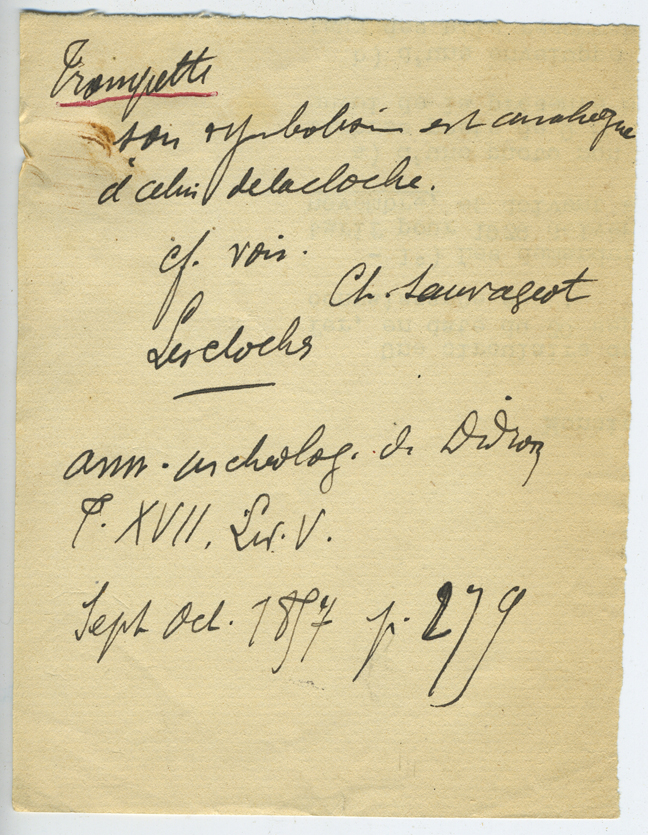 Trompette
son symbolisme est analogue
à celui de la cloche.
cf. voir.
Ch. Sauvageot
Les cloches
ann. archeolog. de Didron
T. XVII. Liv. V.
Sept Oct. 1857 p. 279